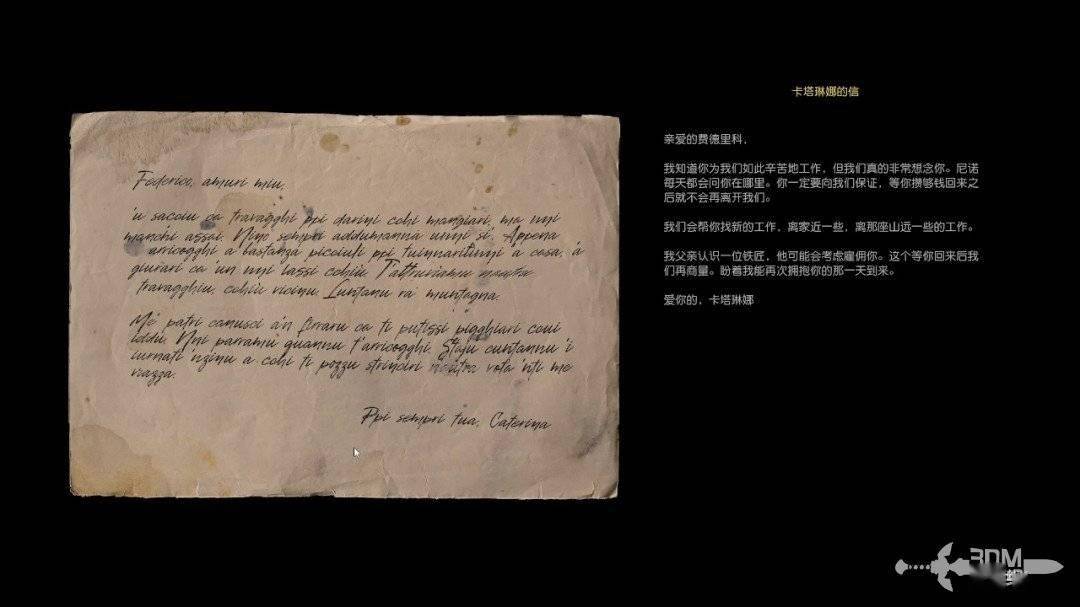 Federico, amuri miu,
'u sacciu ca travagghi ppi darini cchi mangiari, ma nni
manchi assai. Nino sempri addumanna unni si. Appena
arricogghi a bastanza picciuli ppi turnaritinni a casa, 'a
giurari ca 'un nni lassi cchiù. T'attruviamu
travagghiu, cchiù vicinu. Luntanu ra' muntagna.
Me' patri canusci a'n firraru ca ti putissi pigghiari cu
iddu. Nni parramu quannu t'arricogghi. Staju cuntannu 'i
iurnati 'nzinu a cchi ti pozzu strinciri vota 'nti me
vrazza.
Ppi sempri tua, Caterina
卡塔琳娜的信
亲爱的费德里科，
我知道你为我们如此辛苦地工作，但我们真的非常想念你。尼诺
每天都会问你在哪里。你一定要向我们保证，等你攒够钱回来之
后就不会再离开我们。
我们会帮你找新的工作，离家近一些，离那座山远一些的工作。
我父亲认识一位铁匠，他可能会考虑雇佣你。这个等你回来后我
们再商量。盼着我能再次拥抱你的那一天到来。
爱你的，卡塔琳娜
3DM